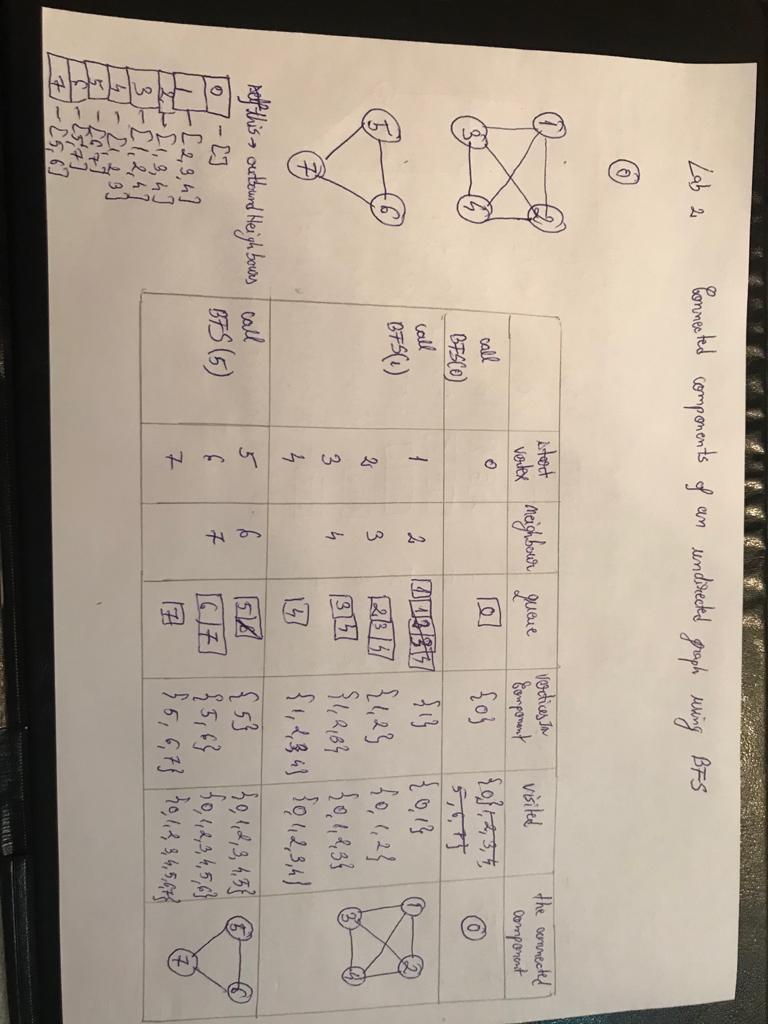 Lab 2 Connected components of an undirected graph using BFS
0
1 2
3 4
5 6
7
this → outbound Neighbours
0 - []
1 - [2,3,4]
2 - [1,3,4]
3 - [1,2,4]
4 - [1,2,3]
5 - [6,7]
6 - [5,7]
7 - [5,6]
start vertex neighbour queue vertices In Component visited the connected component
call BFS(0) 0 0 {0} {0} 1, 2, 3, 4, 5, 6, 7} 0
call BFS(1) 1 2 1 1 2 3 4 {1} {0,1} 1 2 3 4
2 3 2 3 4 {1,2} {0, 1, 2}
3 4 3 4 {1,2,3} {0,1,2,3}
4 4 {1, 2,3, 4} {0,1,2,3,4}
call BFS(5) 5 6 5 6 {5} {0,1,2,3,4,5} 5 6 7
6 7 6 7 {5, 6} {0,1,2,3,4,5,6}
7 7 {5, 6,7} {0,1,2,3,4,5,6,7}